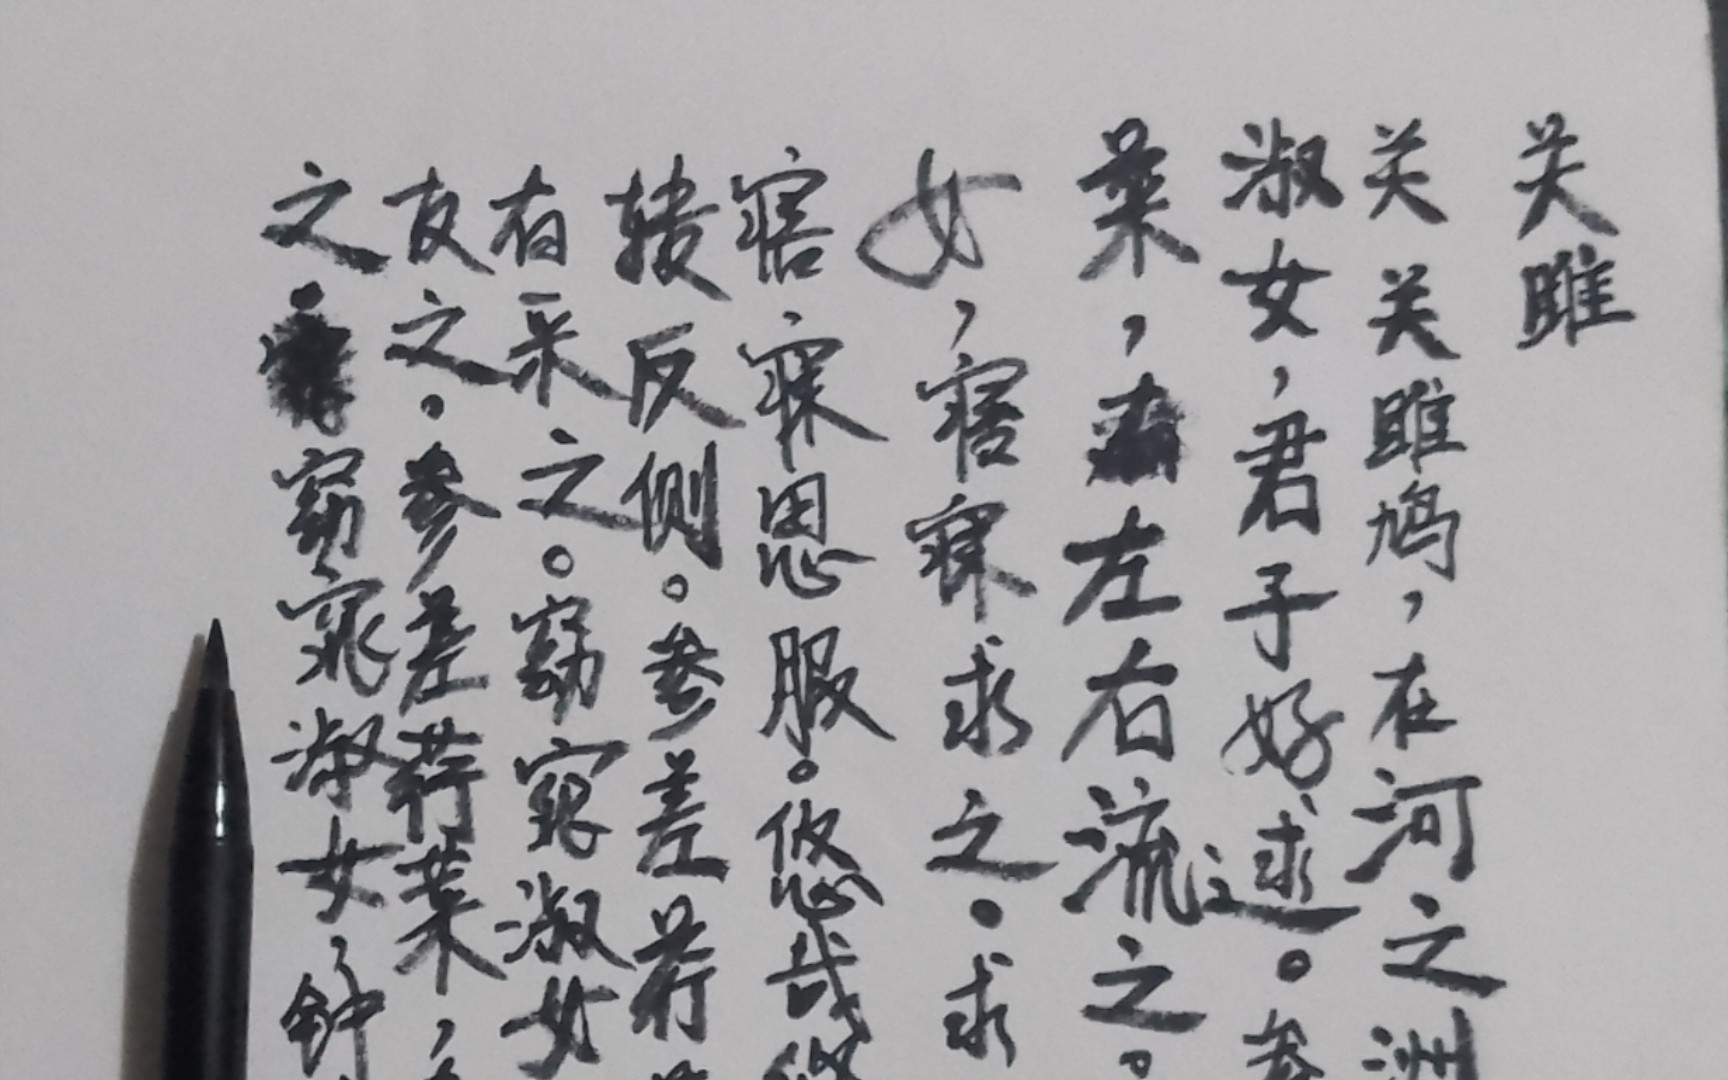 关雎
关关雎鸠，在河之洲
淑女，君子好逑。参
菜，左右流之。
女，寤寐求之。求
寤寐思服。悠哉悠
转反侧。参差荇菜
有采之。窈窕淑女
友之。参差荇菜，
之窈窕淑女，钟